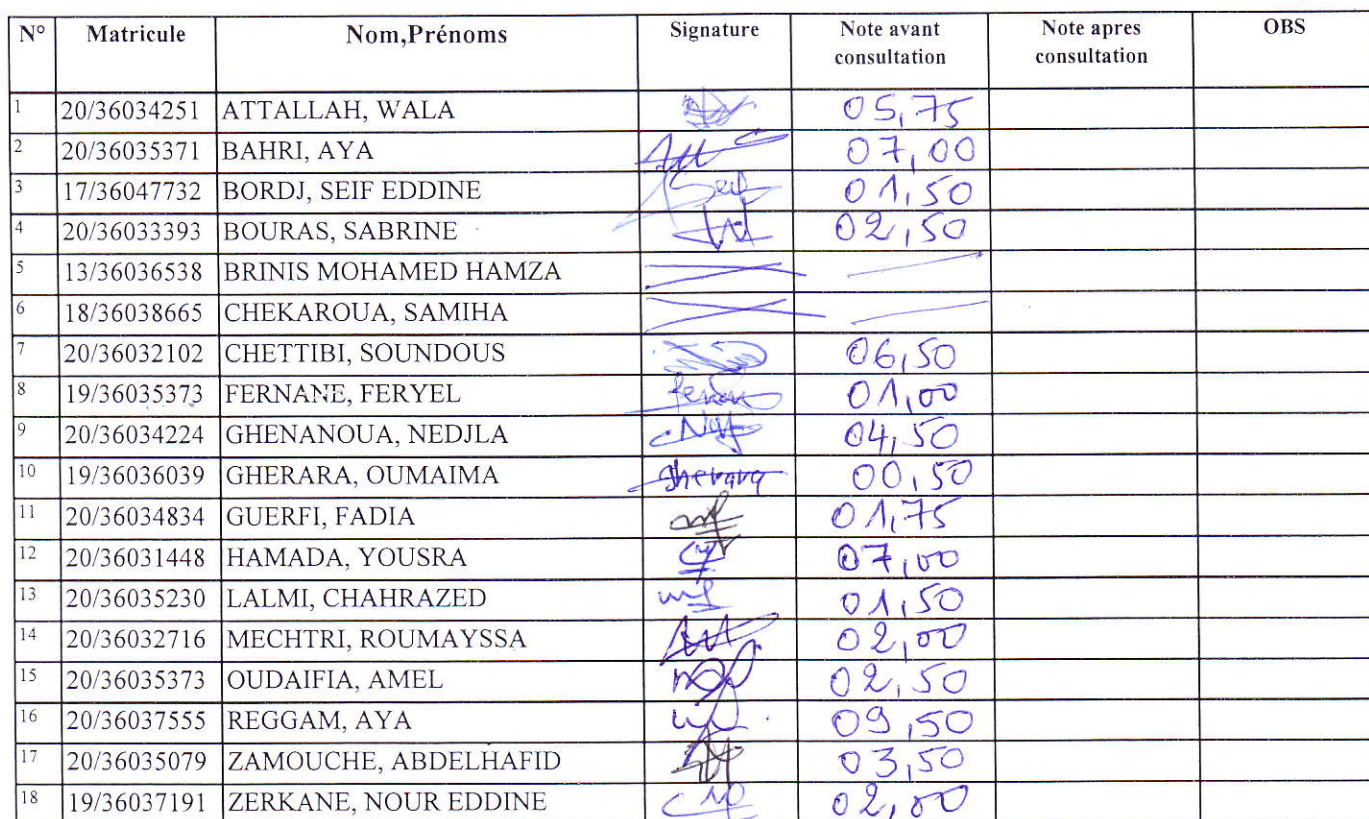 N° Matricule Nom,Prénoms Signature Note avant consultation Note apres consultation OBS
1 20/36034251 ATTALLAH, WALA 05,75
2 20/36035371 BAHRI, AYA 07,00
3 17/36047732 BORDJ, SEIF EDDINE Seif 01,50
4 20/36033393 BOURAS, SABRINE 02,50
5 13/36036538 BRINIS MOHAMED HAMZA
6 18/36038665 CHEKAROUA, SAMIHA
7 20/36032102 CHETTIBI, SOUNDOUS 06,50
8 19/36035373 FERNANE, FERYEL 01,00
9 20/36034224 GHENANOUA, NEDJLA 04,50
10 19/36036039 GHERARA, OUMAIMA Gherara 00,50
11 20/36034834 GUERFI, FADIA 01,75
12 20/36031448 HAMADA, YOUSRA 07,00
13 20/36035230 LALMI, CHAHRAZED 01,50
14 20/36032716 MECHTRI, ROUMAYSSA 02,00
15 20/36035373 OUDAIFIA, AMEL 02,50
16 20/36037555 REGGAM, AYA 09,50
17 20/36035079 ZAMOUCHE, ABDELHAFID 03,50
18 19/36037191 ZERKANE, NOUR EDDINE 02,00